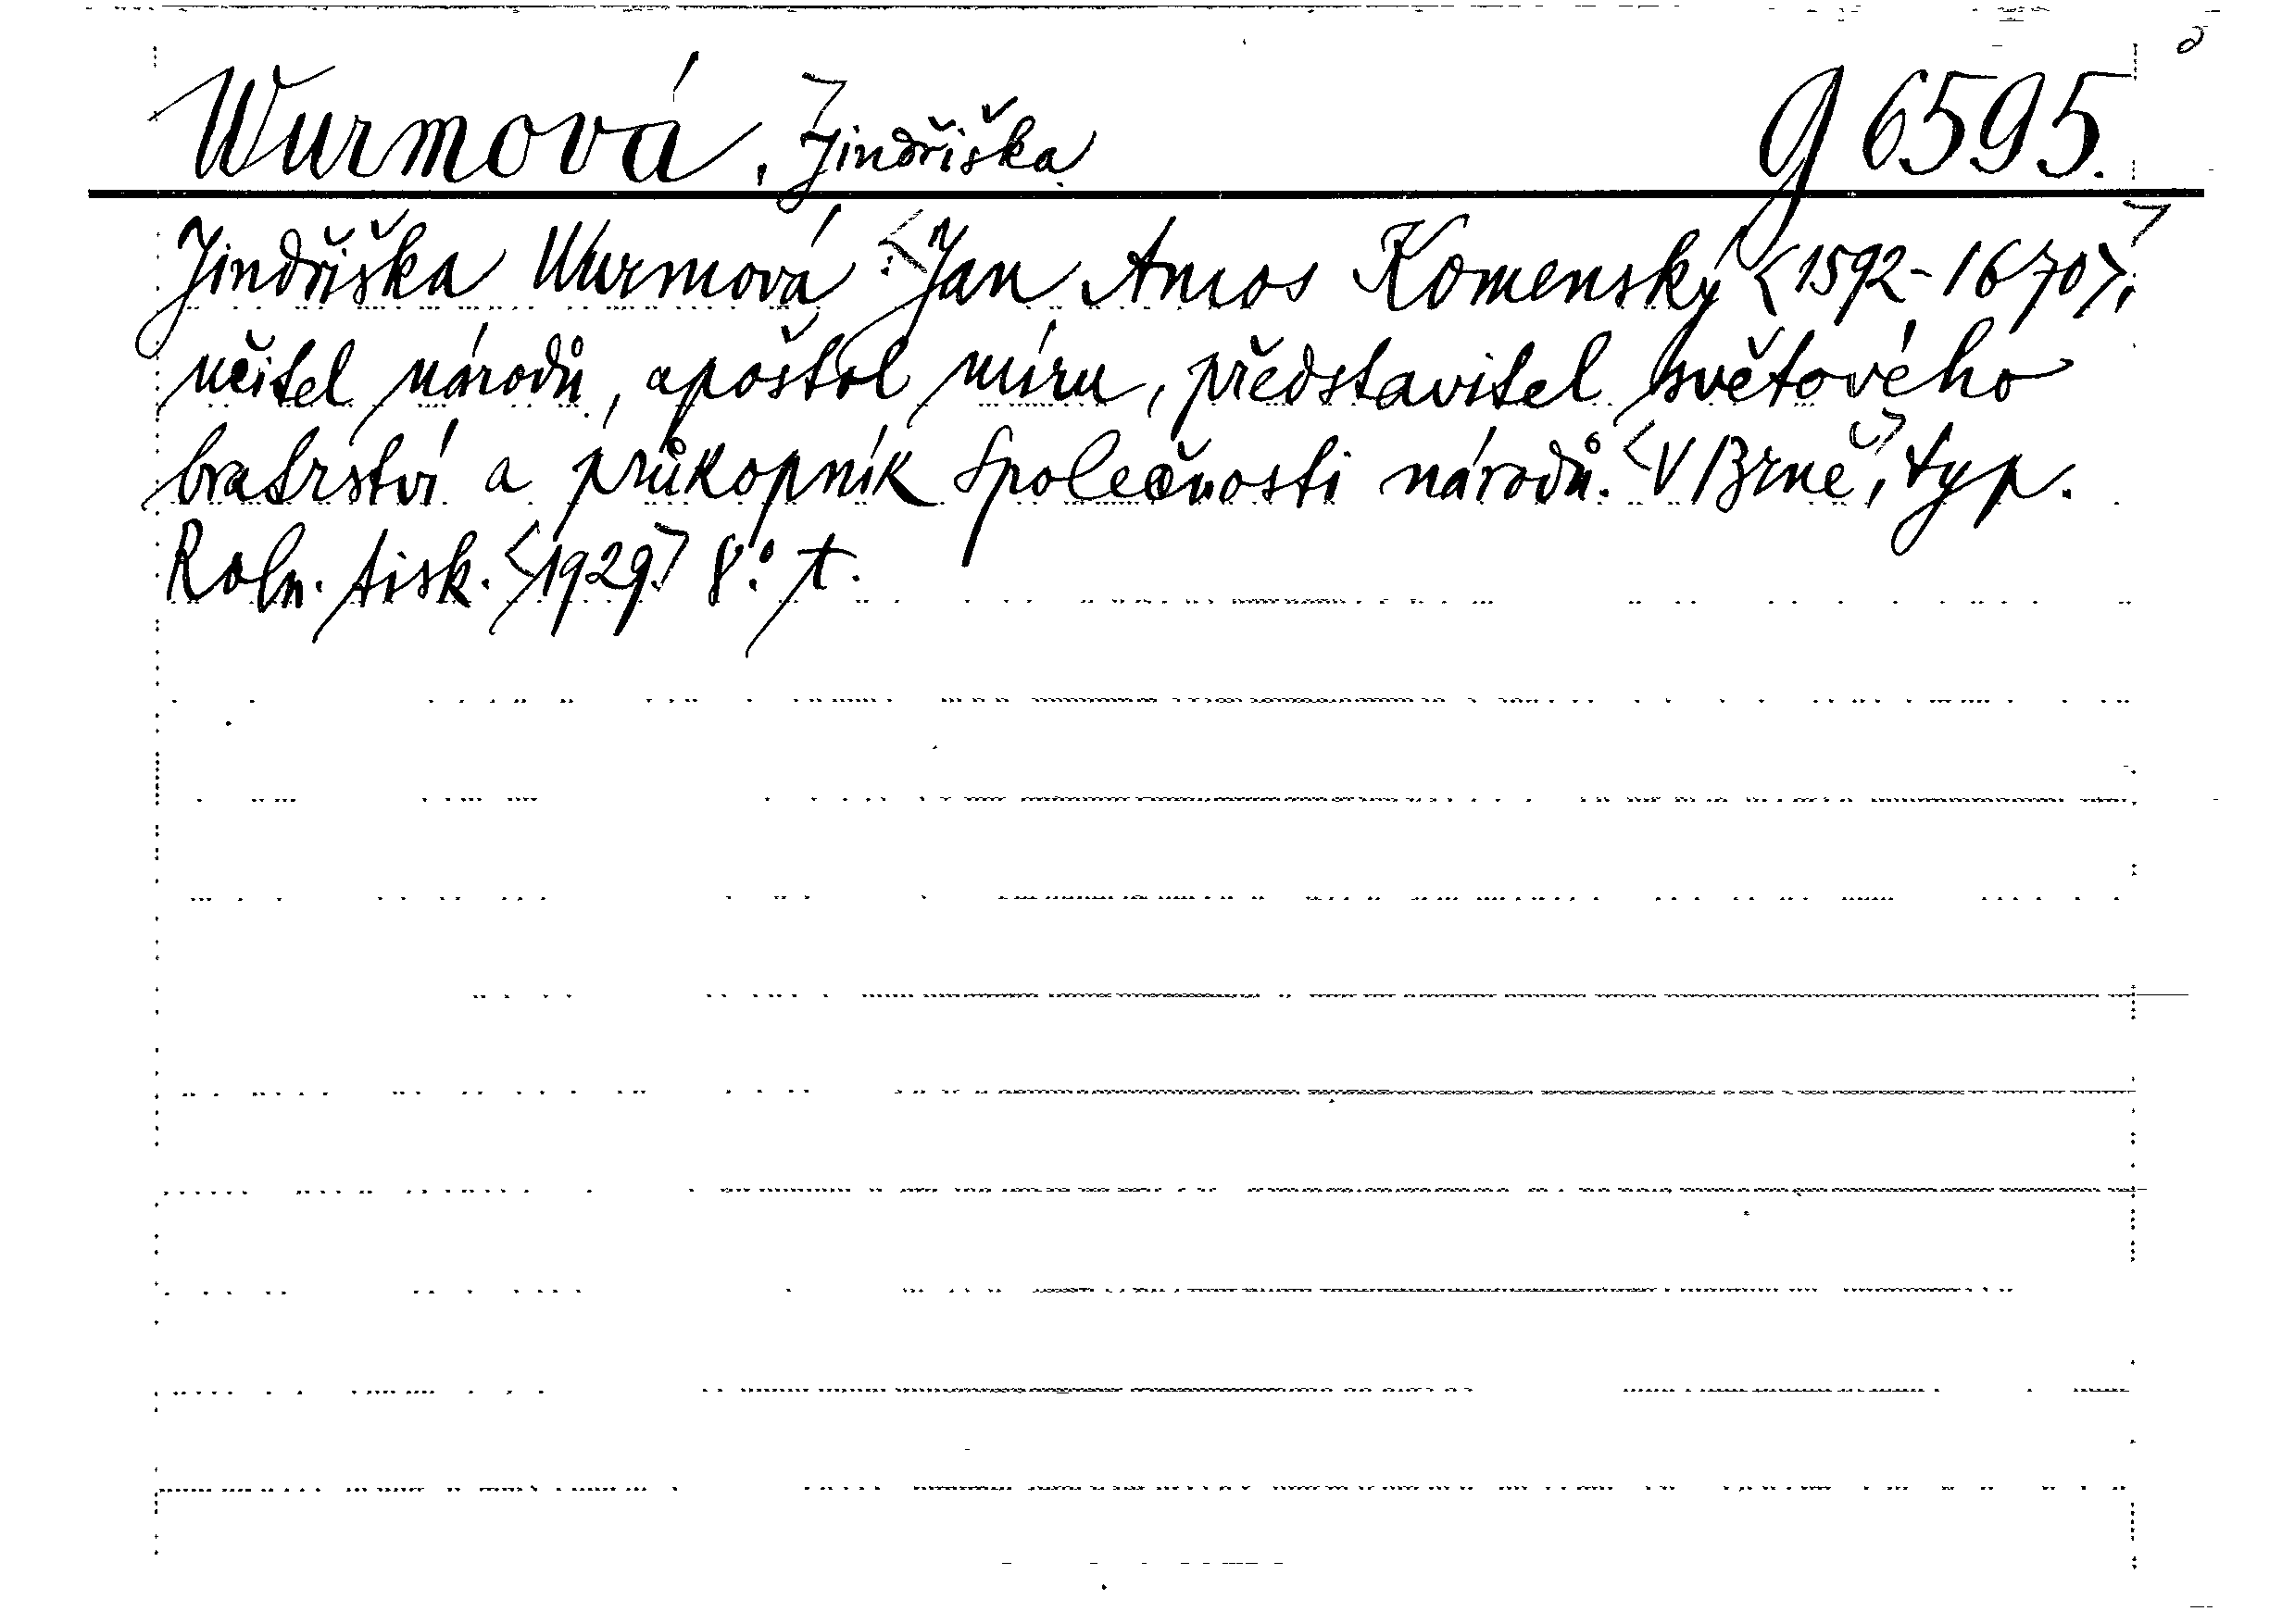 Wurmová, Jindřiška g 6595.
Jindřiška Wurmová: <Jan Amos Komenský <1592-1670>,>
učitel národů, apoštol míru, představitel světového
bratrství a průkopník Společnosti národů. <V Brně>, typ.
Roln. tisk. <1929.> 8.° t.